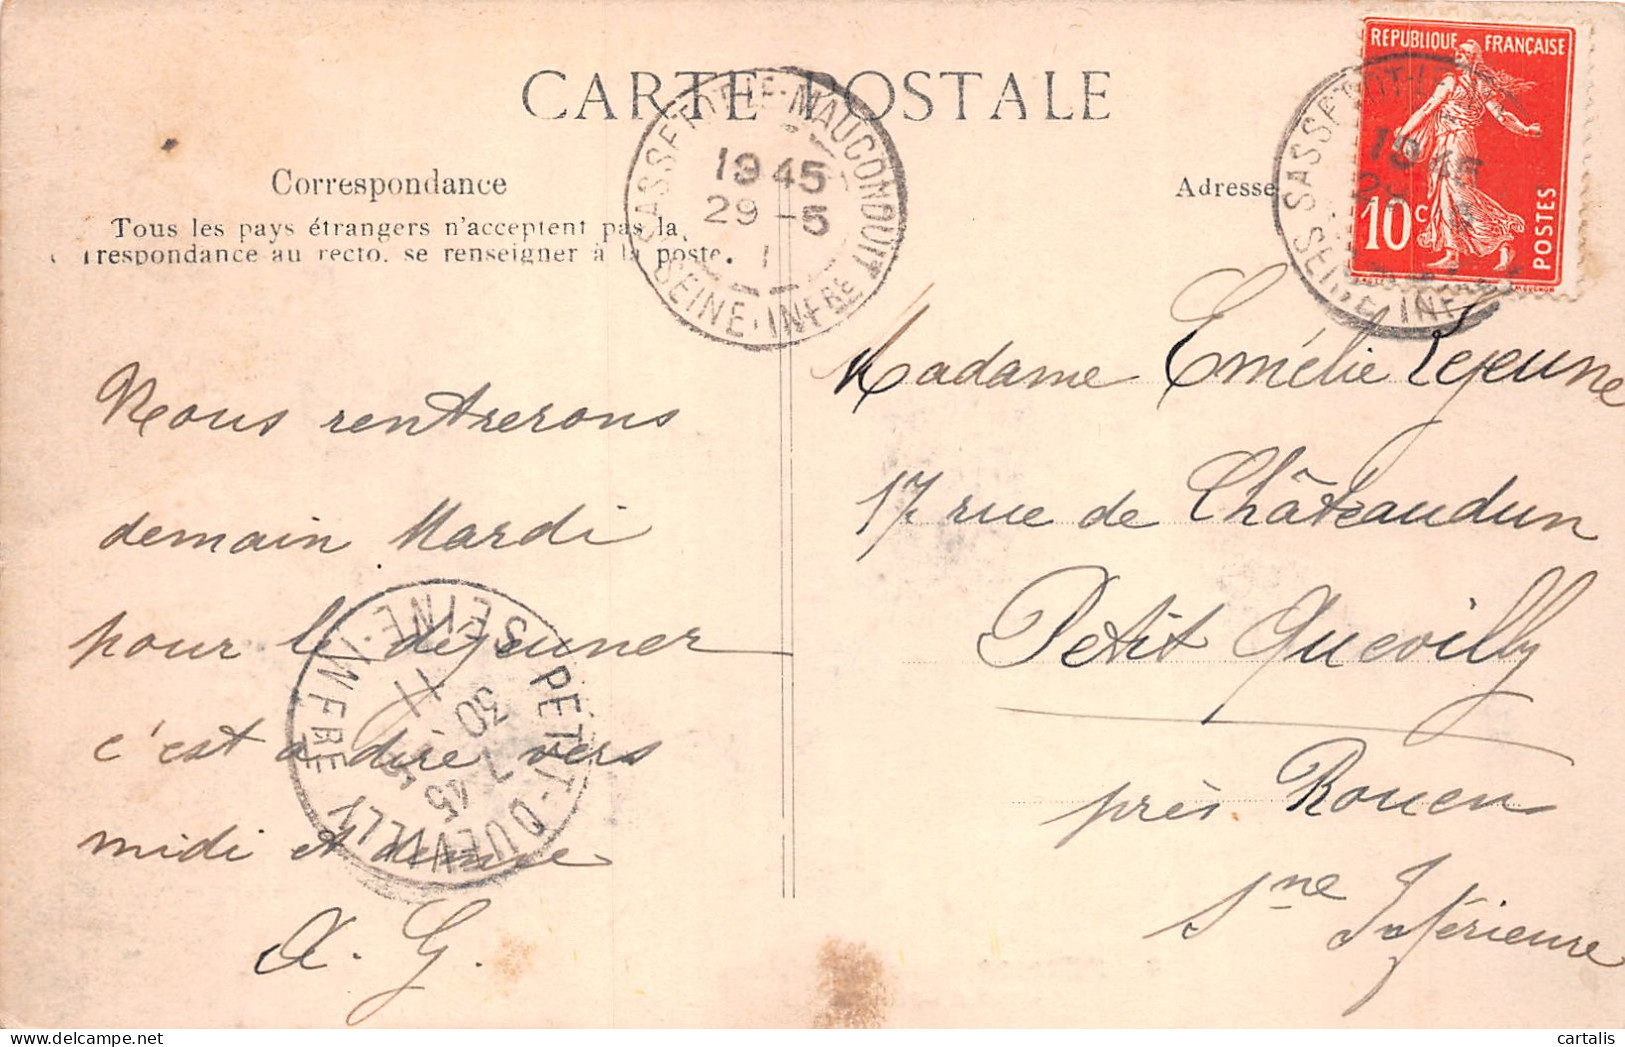 CARTE POSTALE
Correspondance
Tous les pays étrangers n'acceptent pas la
respondance au recto. se renseigner à la poste.
Nous rentrerons
demain Mardi
pour le déjeuner
c'est a dire vers
midi et demie
A. G.
SASSETOT-LE-MAUCONDUIT
1945
29 -5
1
SEINE-INFRE
PETIT-QUEVILLY
SEINE-INFRE
11
30
7 45
Adresse
REPUBLIQUE FRANÇAISE
10c
POSTES
MOUCHON
SASSETOT-LE
1945
SEINE-INF
Madame Emélie Lejeune
17 rue de Châteaudun
Petit Quevilly
près Rouen
Sne Inférieure
cartalis
www.delcampe.net